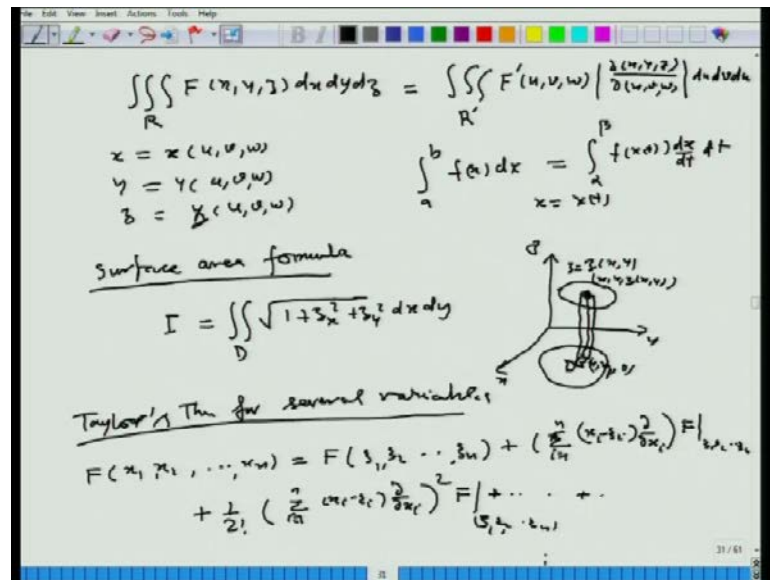 File Edit View Insert Actions Tools Help
∭_R F(x,y,z) dx dy dz = ∭_R' F'(u,v,w) |∂(x,y,z)/∂(u,v,w)| du dv dw
x = x(u,v,w)
y = y(u,v,w)
z = z(u,v,w)
∫_a^b f(x) dx = ∫_α^β f(x(t)) dx/dt dt
x = x(t)
Surface area formula
I = ∬_D √(1+z_x^2+z_y^2) dx dy
z
z=z(x,y)
(x,y,z(x,y))
y
D (x,y,0)
x
Taylor's Thm for several variables
F(x_1, x_2, ..., x_n) = F(ξ_1, ξ_2 ... ξ_n) + (Σ_{i=1}^n (x_i-ξ_i) ∂/∂x_i) F|_{ξ_1,ξ_2...ξ_n}
+ 1/2! (Σ_{i=1}^n (x_i-ξ_i) ∂/∂x_i)^2 F|_{(ξ_1,ξ_2...ξ_n)} + ... + ..
31 / 61
31